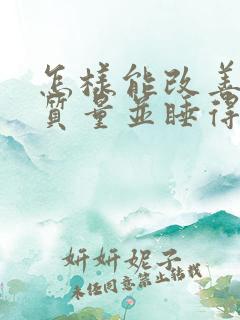 怎樣能改善
質量並睡得
妍妍妮子
未经同意禁止转载